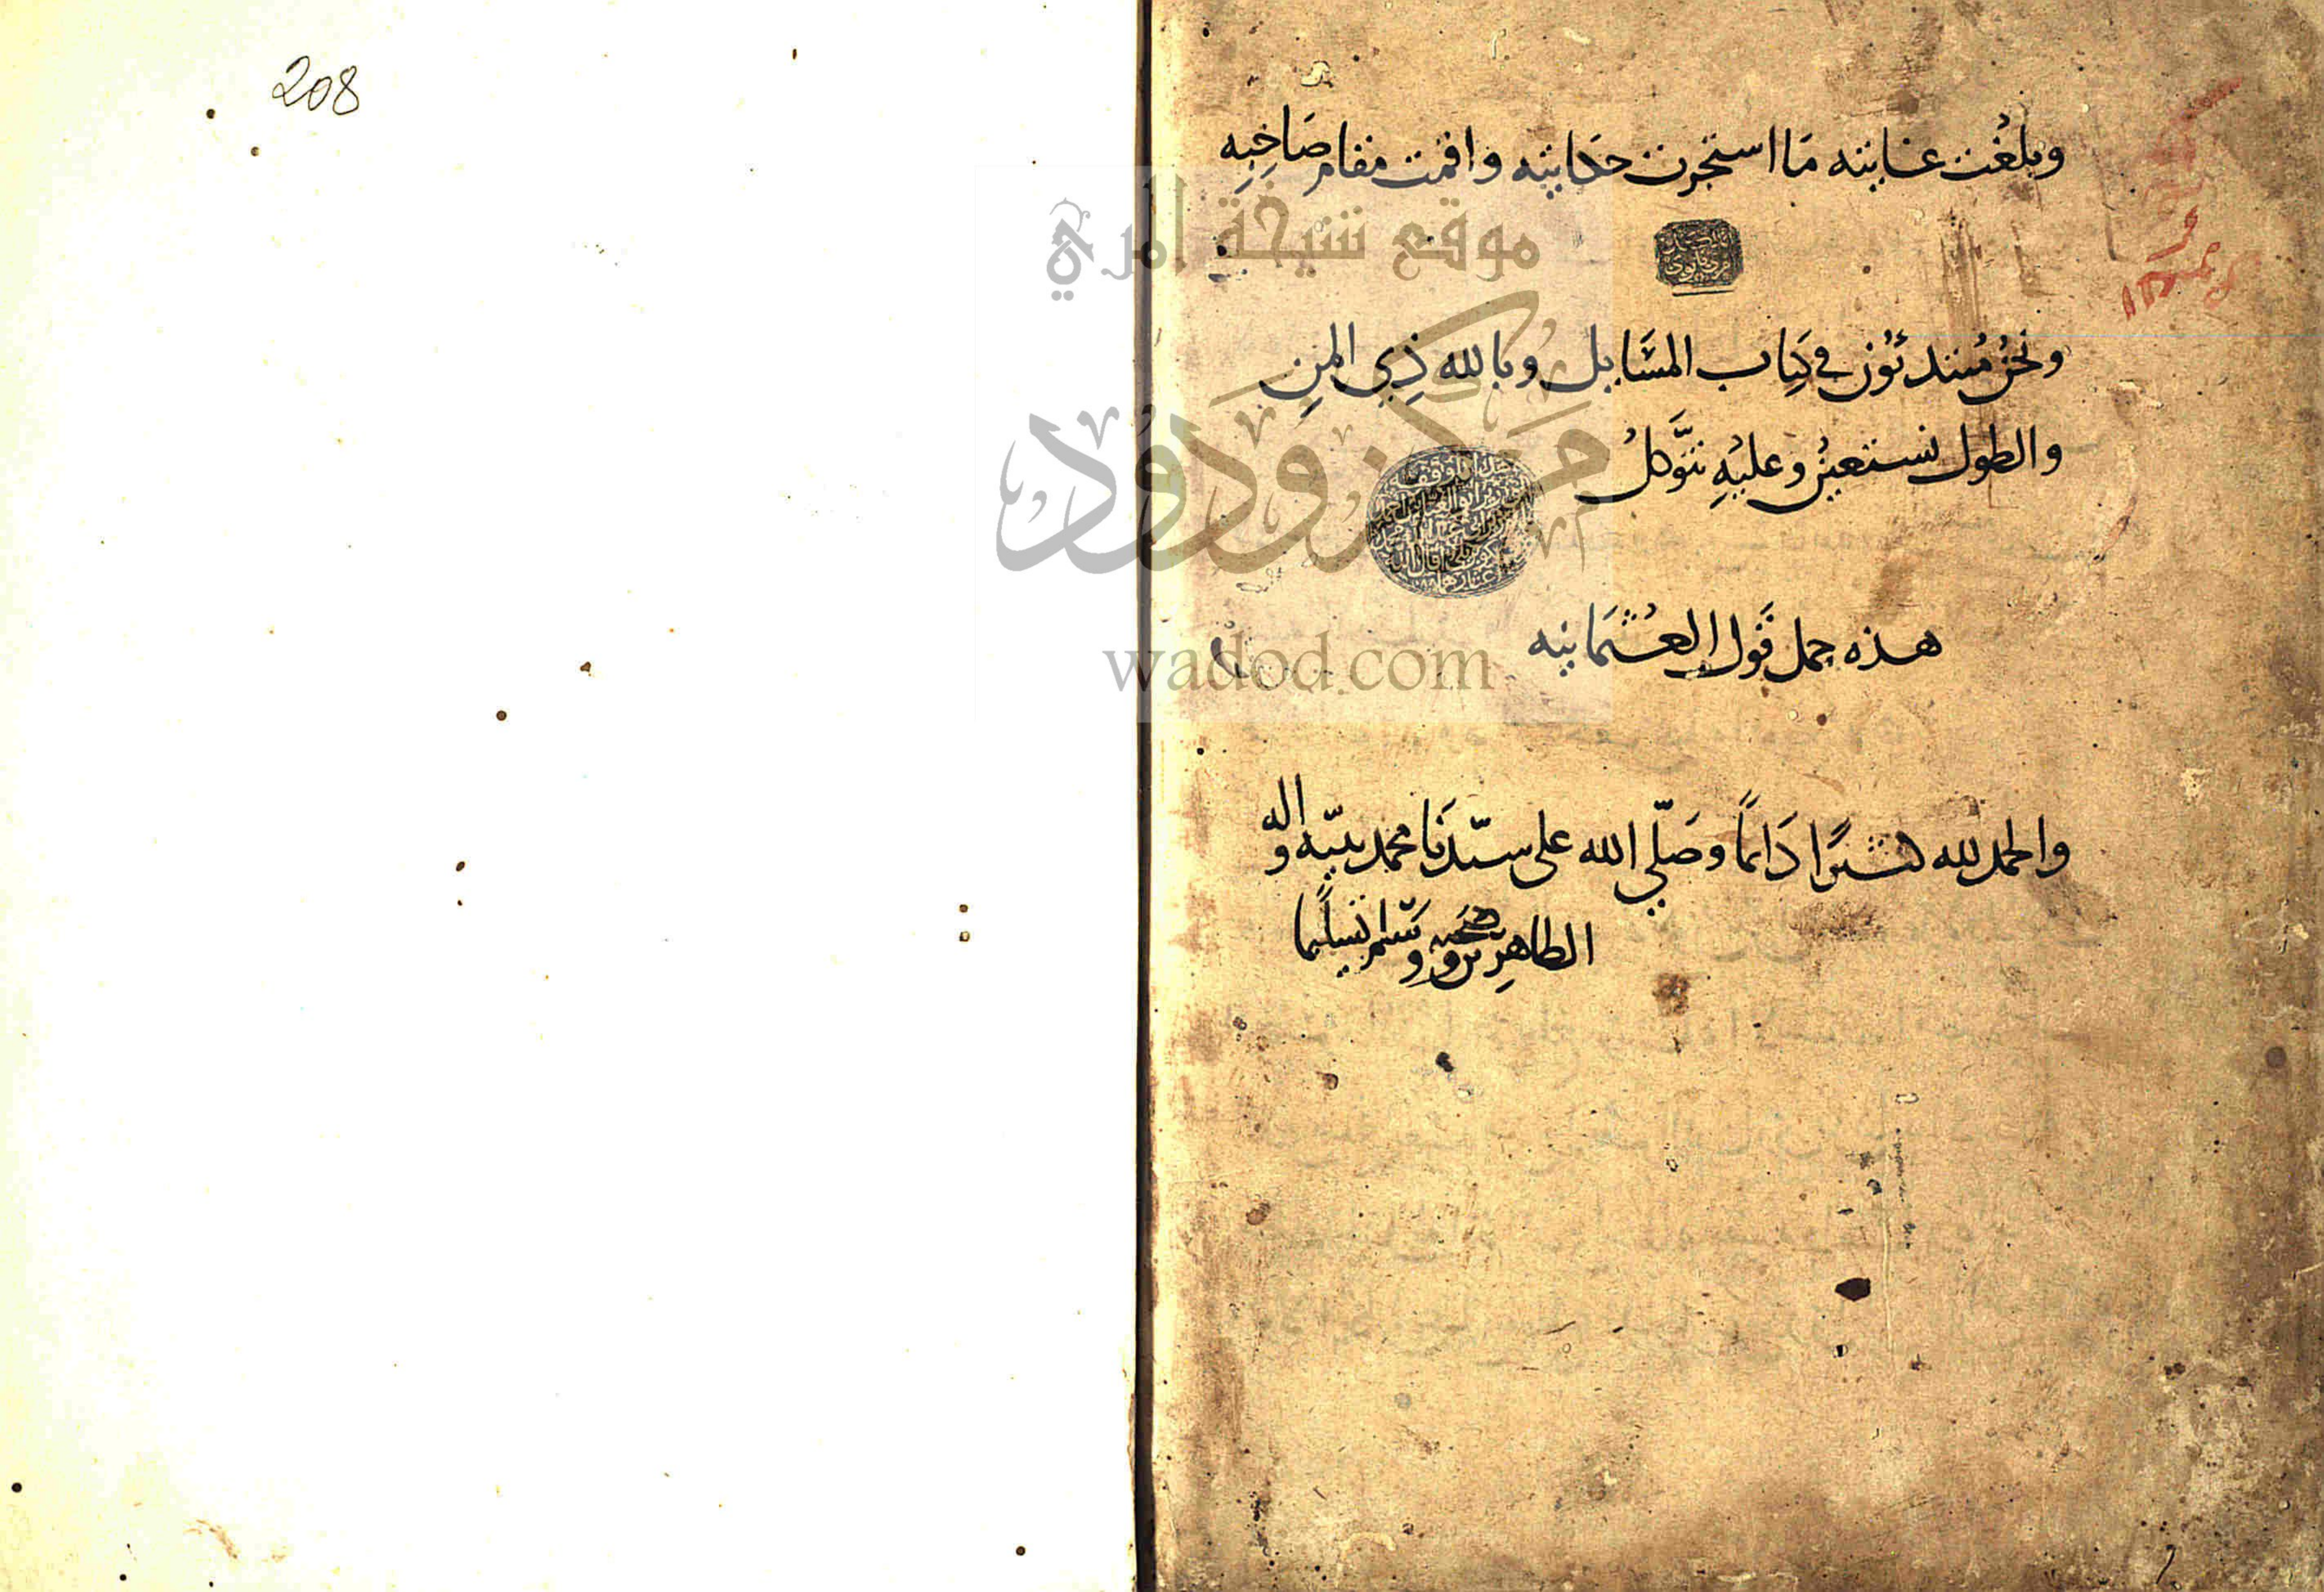 وبلغت غايته ما استخرت حكايته واقمت مقام صاحبه
ونحن مبتدئون في كتاب المسايل وبالله ذي المن
والطول نستعين وعليه نتوكل
هذه جمل قول العثمانيه
والحمد لله كثيرًا دائمًا وصلّي الله على سيّدنا محمد نبيّه واله
الطاهرين وصحبه وسلم تسليما
208
موقع شيخة امري
مركز ودود
wadod.com